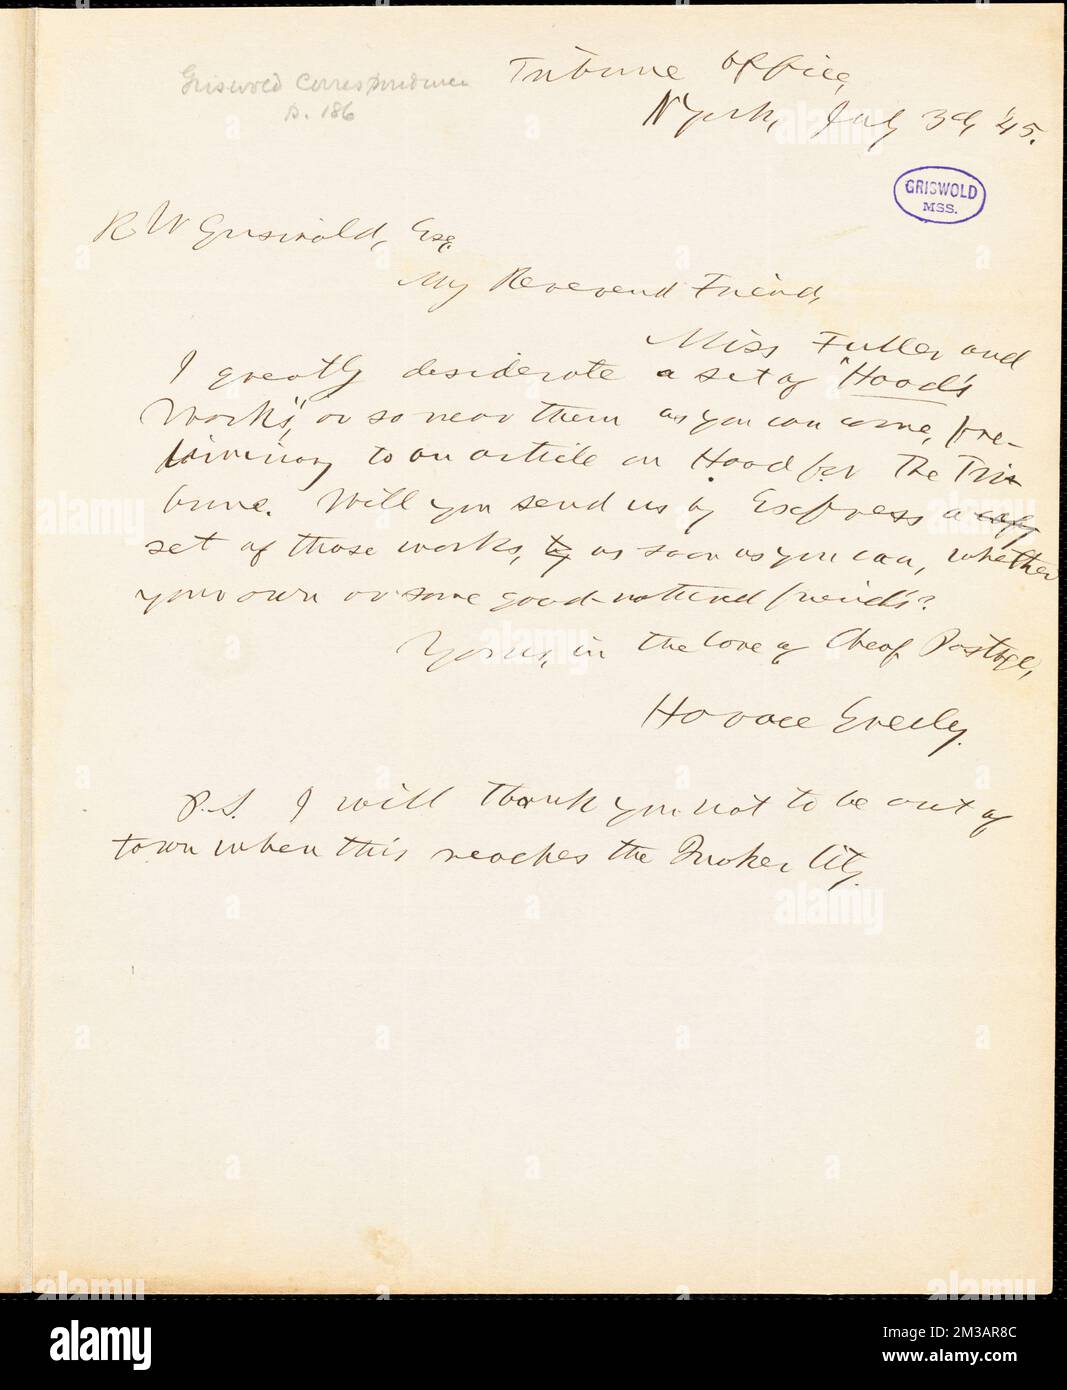 Griswold Correspondence
p. 186
Tribune Office,
N York, July 3d, '45.
GRISWOLD
MSS.
R W Griswold, Esq.
My Reverend Friend,
Miss Fuller and
I greatly desiderate a set of "Hood's
Works," or so near them as you can come, pre-
liminary to an article on Hood for The Tri-
bune. Will you send us by Express a copy
set of those works, by as soon as you can, whether
your own or some good-natured friend's?
Yours, in the love of Cheap Postage,
Horace Greeley.
P.S. I will thank you not to be out of
town when this reaches the Quaker City.
alamy
Image ID: 2M3AR8C
www.alamy.com